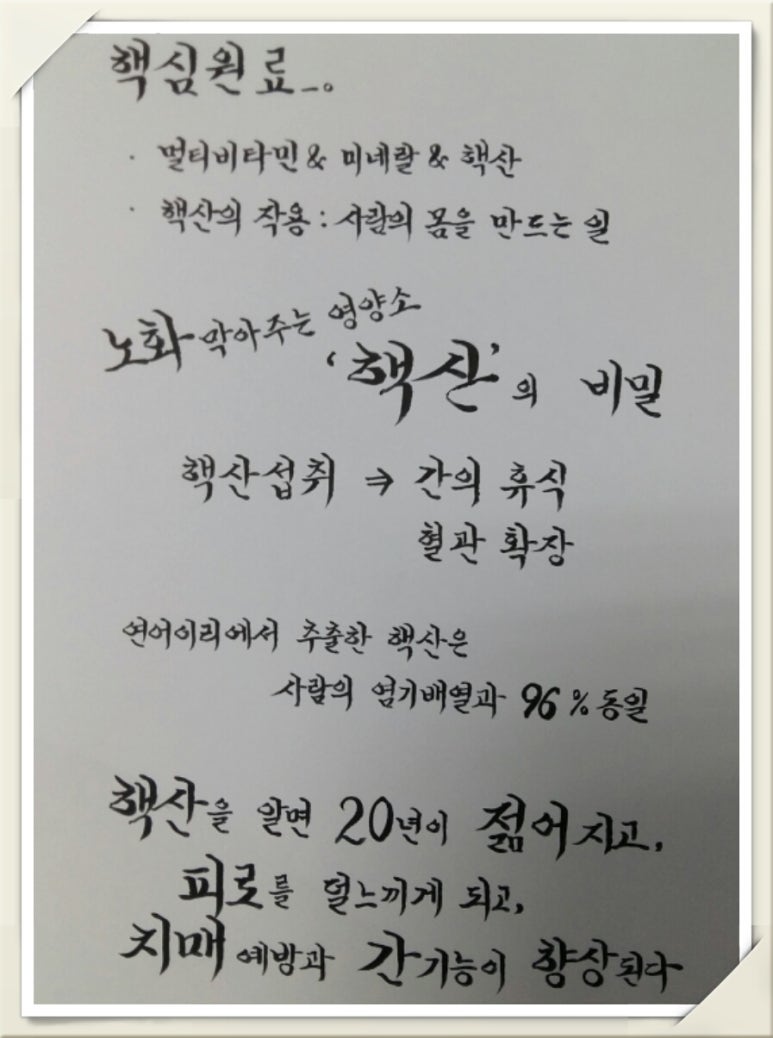 핵심원료_。
· 멀티비타민 & 미네랄 & 핵산
· 핵산의 작용 : 사람의 몸을 만드는 일
노화 막아주는 영양소
‘핵산’의 비밀
핵산섭취 ⇒ 간의 휴식
혈관 확장
연어이리에서 추출한 핵산은
사람의 염기배열과 96% 동일
핵산을 알면 20년이 젊어지고,
피로를 덜느끼게 되고,
치매예방과 간기능이 향상된다